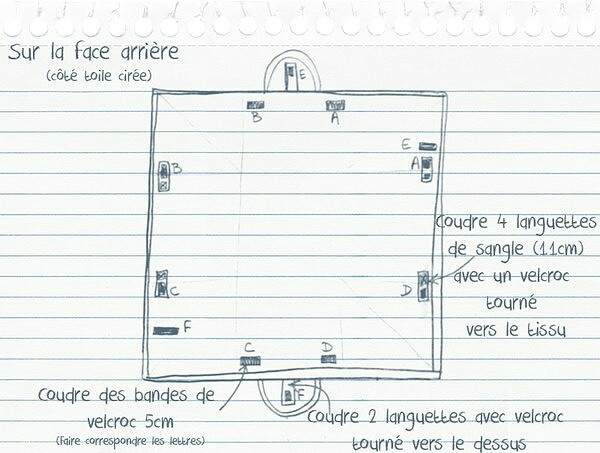 Sur la face arrière
(côté toile cirée)
E
B
A
E
A
B
Coudre 4 languettes
de sangle (11cm)
avec un velcroc
tourné
vers le tissu
C
D
A
F
C
D
Coudre des bandes de
velcroc 5cm
(Faire correspondre les lettres)
F
Coudre 2 languettes avec velcroc
tourné vers le dessus